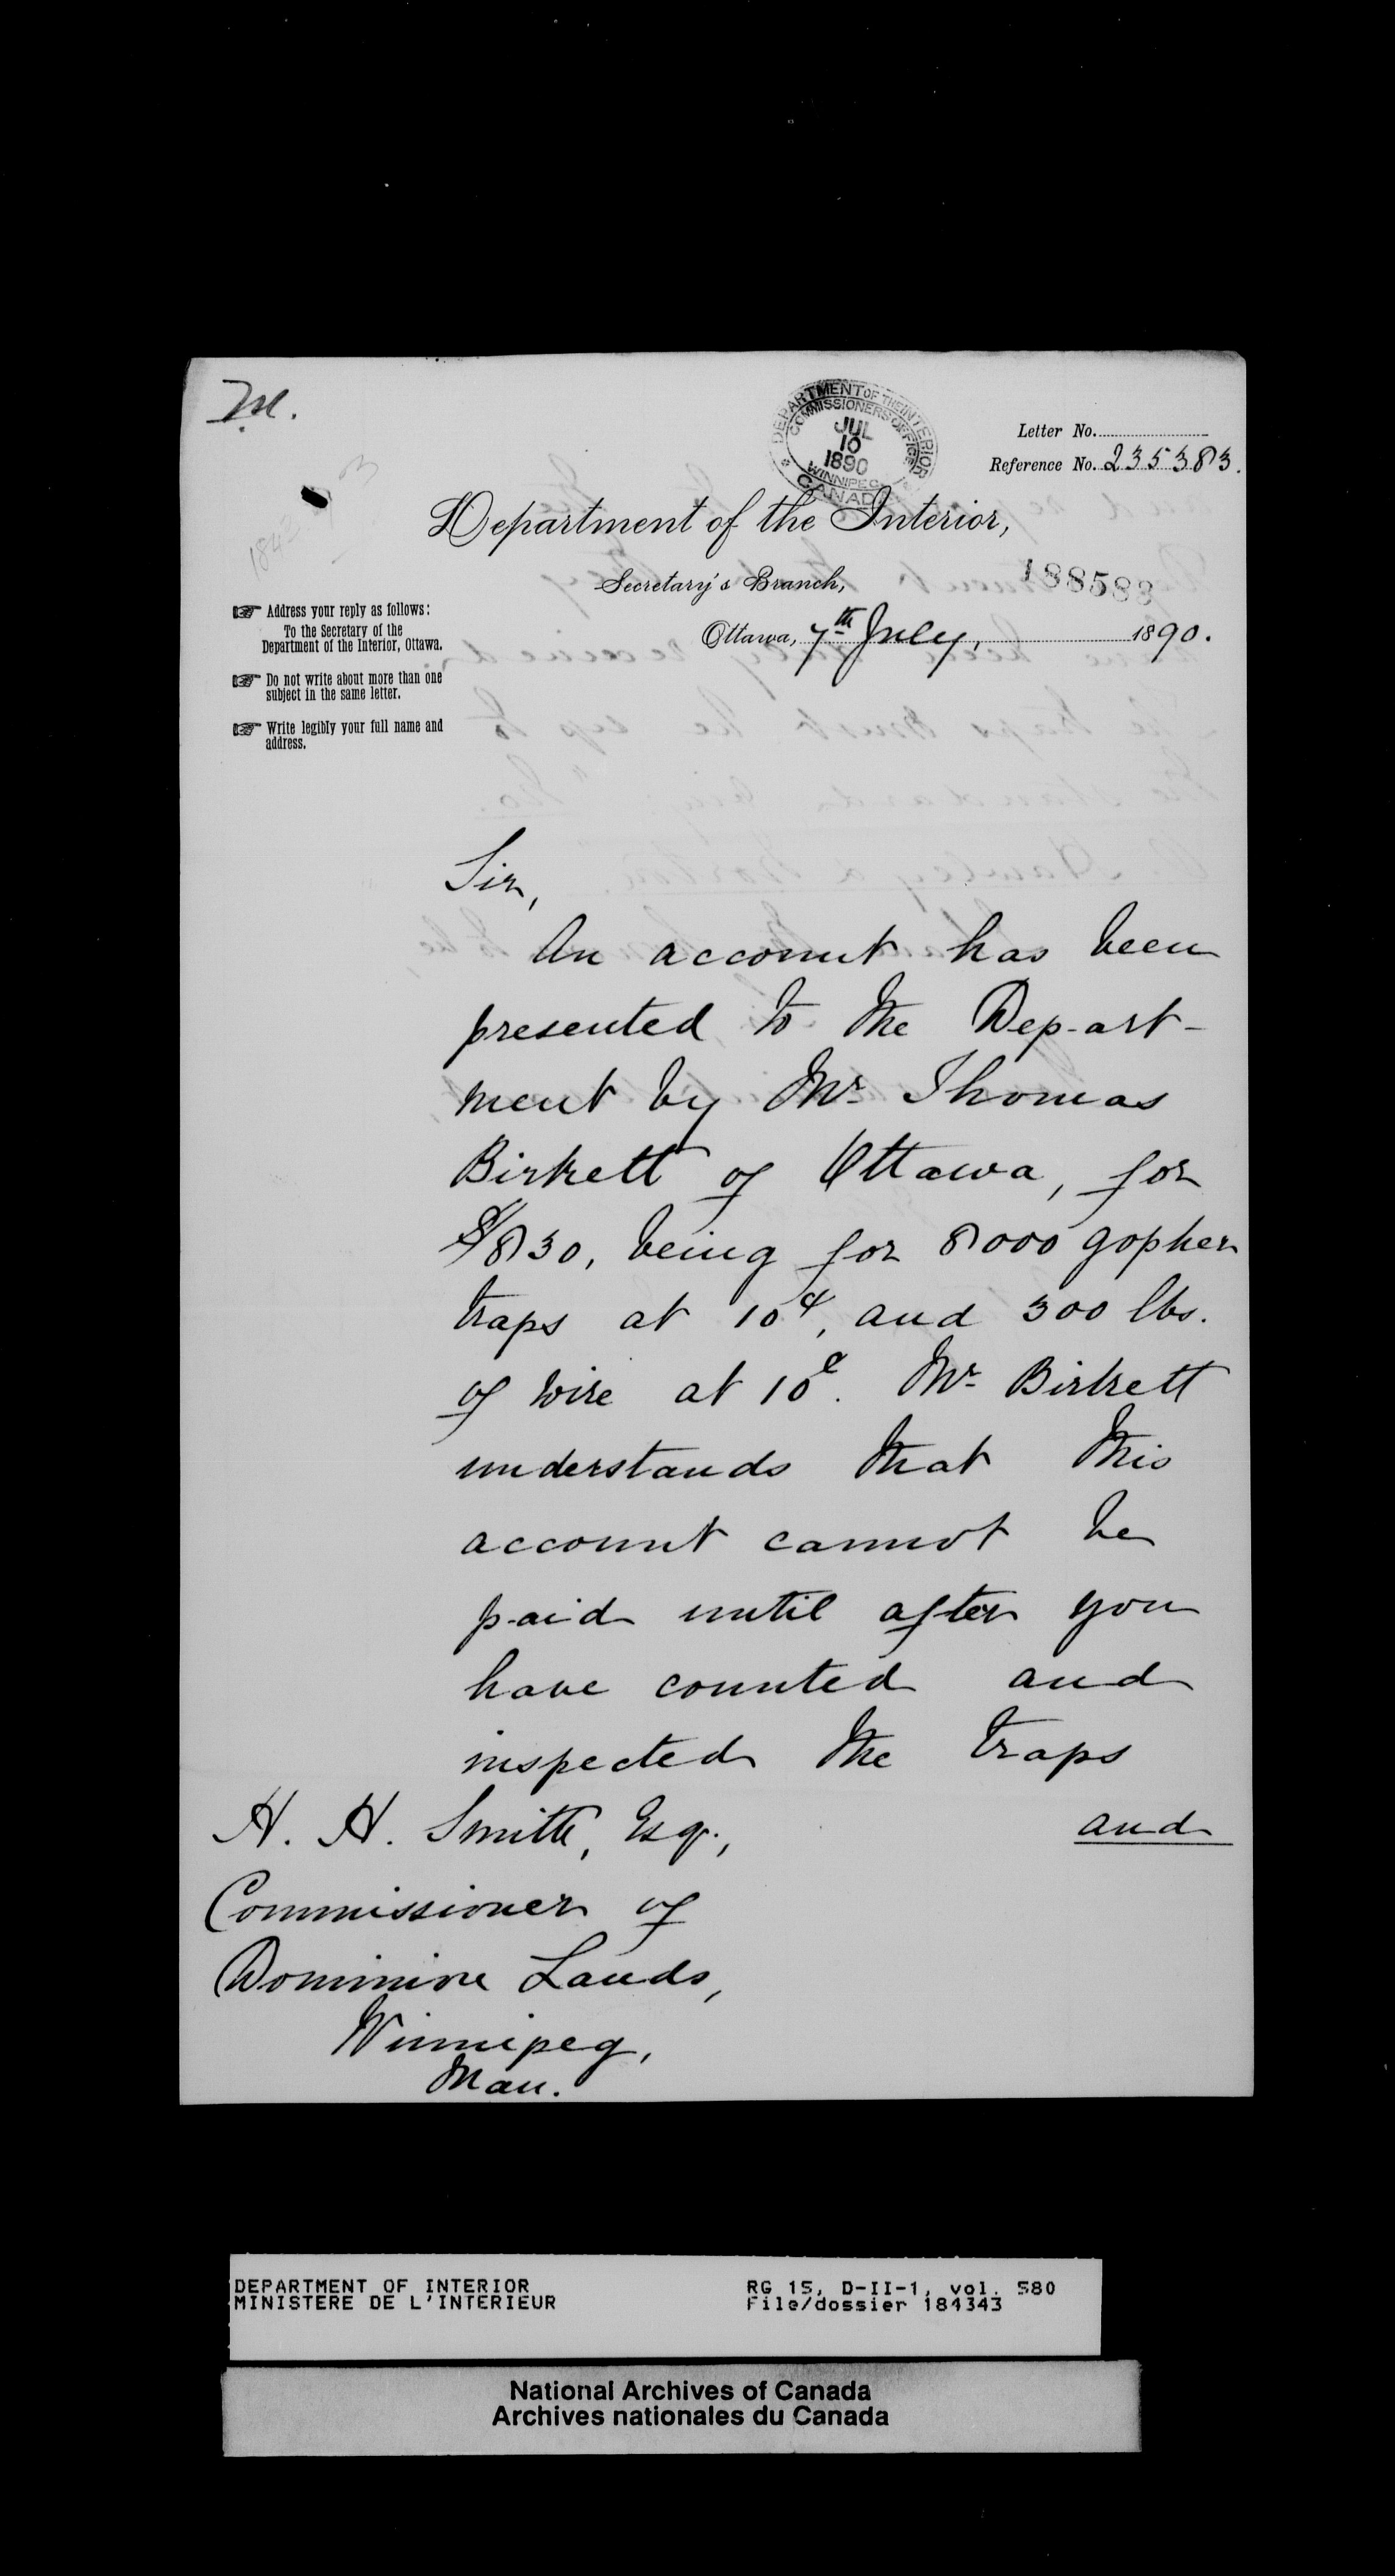 M.
DEPARTMENT OF THE INTERIOR
COMMISSIONERS OFFICE
JUL
10
1890
WINNIPEG
CANADA
Letter No.
Reference No. 235383.
Department of the Interior,
Secretary's Branch,
188583
Ottawa, 7th July, 1890.
Address your reply as follows:
To the Secretary of the
Department of the Interior, Ottawa.
Do not write about more than one
subject in the same letter.
Write legibly your full name and
address.
Sir,
An account has been
presented to the Depart-
ment by Mr. Thomas
Birkett of Ottawa, for
$830, being for 8000 gopher
traps at 10¢, and 300 lbs.
of wire at 10¢. Mr. Birkett
understands that this
account cannot be
paid until after you
have counted and
inspected the traps
and
H. H. Smith, Esq.,
Commissioner of
Dominion Lands,
Winnipeg,
Man.
DEPARTMENT OF INTERIOR
MINISTERE DE L'INTERIEUR
RG 15, D-II-1, vol. 580
File/dossier 184343
National Archives of Canada
Archives nationales du Canada